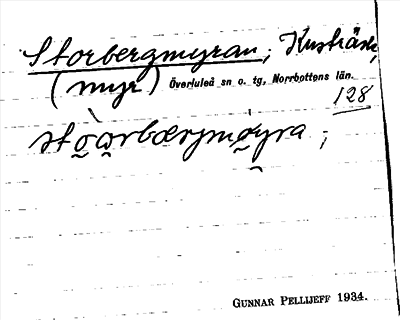 Storbergmyran; Kusträsk,
(myr) Överluleå sn o. tg, Norrbottens län.
128
stò̰a̰rbærjmø̰yra ;
GUNNAR PELLIJEFF 1934.